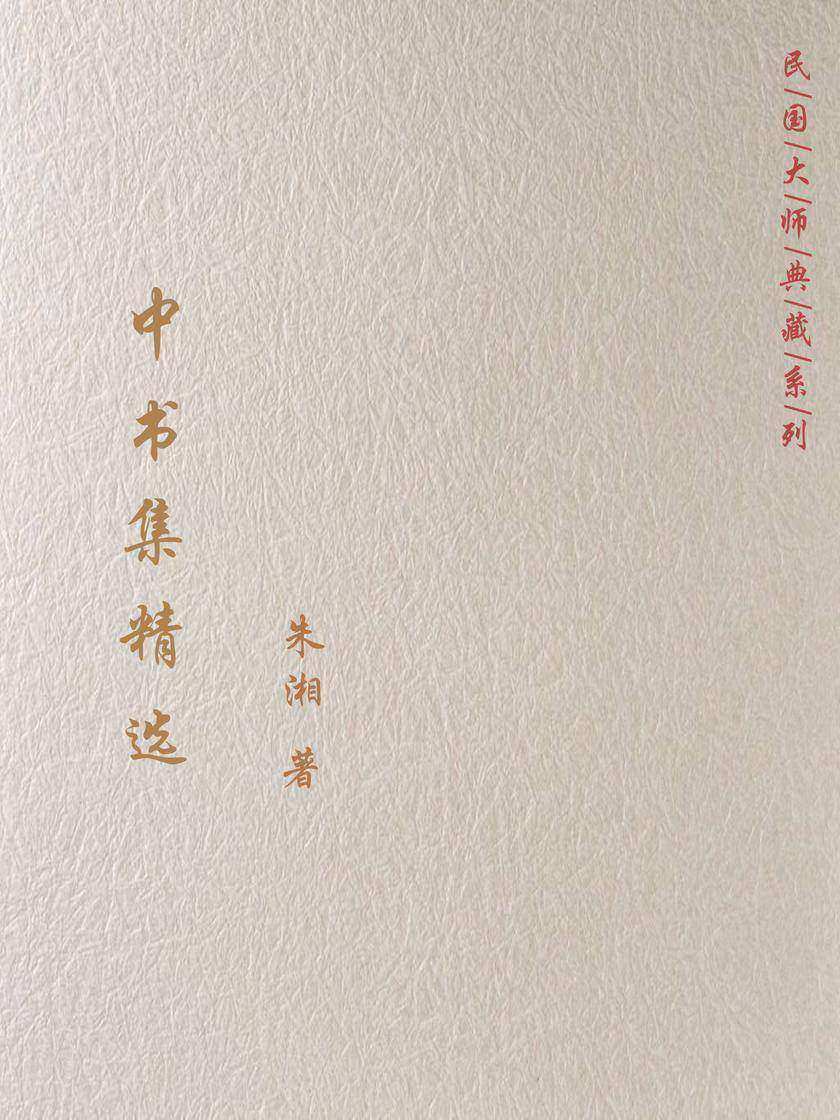 民|国|大|师|典|藏|系|列
中书集精选
朱湘 著